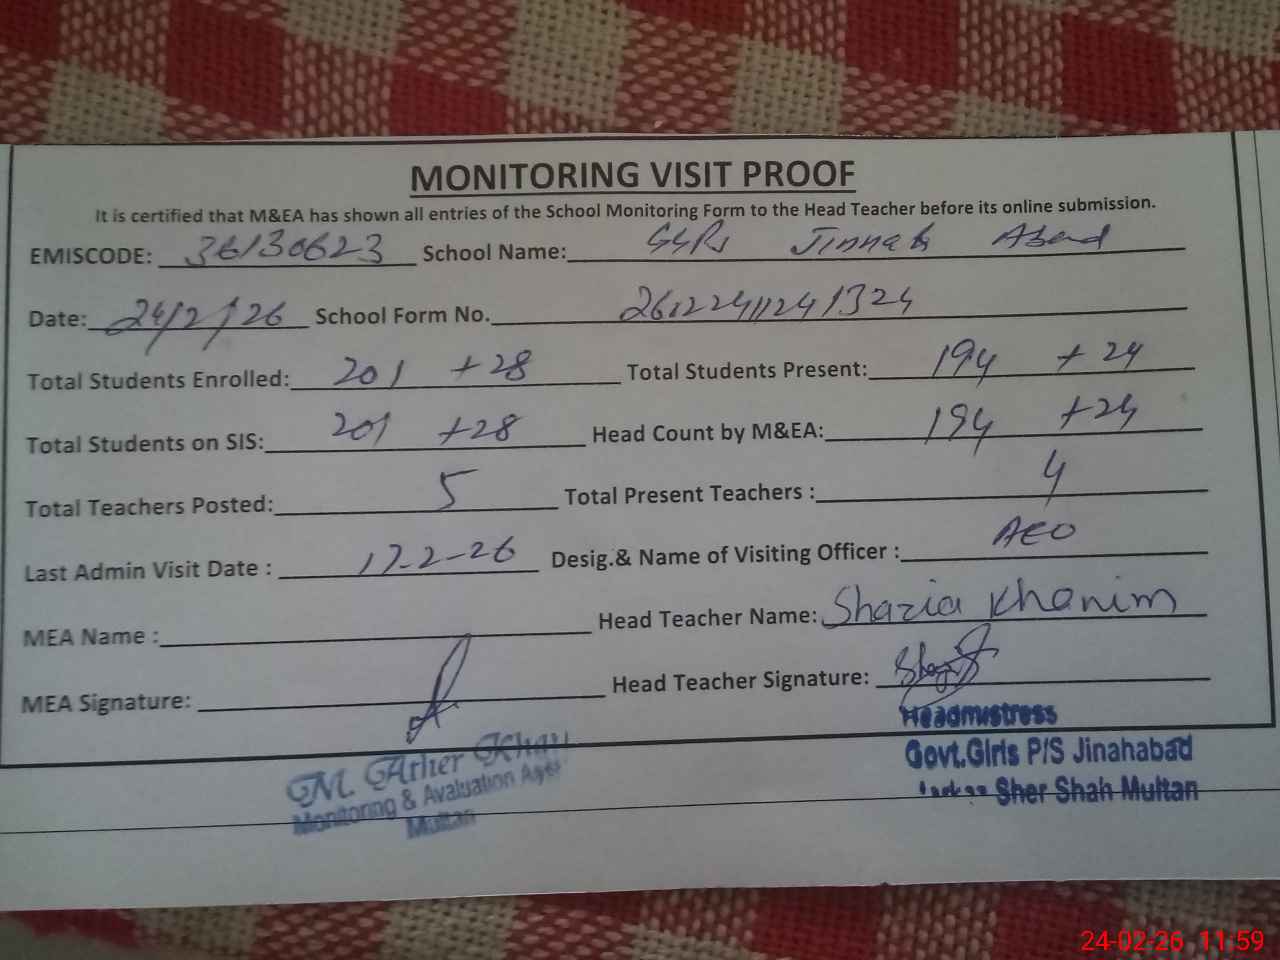 MONITORING VISIT PROOF
It is certified that M&EA has shown all entries of the School Monitoring Form to the Head Teacher before its online submission.
EMISCODE: 36130623 School Name: GGPS Jinnah Abad
Date: 24/2/26 School Form No. 26122411241324
Total Students Enrolled: 201 +28 Total Students Present: 194 +24
Total Students on SIS: 201 +28 Head Count by M&EA: 194 +24
Total Teachers Posted: 5 Total Present Teachers : 4
Last Admin Visit Date : 17-2-26 Desig.& Name of Visiting Officer : AEO
MEA Name : Head Teacher Name: Shazia Khanim
MEA Signature: Head Teacher Signature:
Headmistress
M. Ather Khan Govt.Girls P/S Jinahabad
Monitoring & Avaluation Sher Shah Multan
Multan
24-02-26 11:59